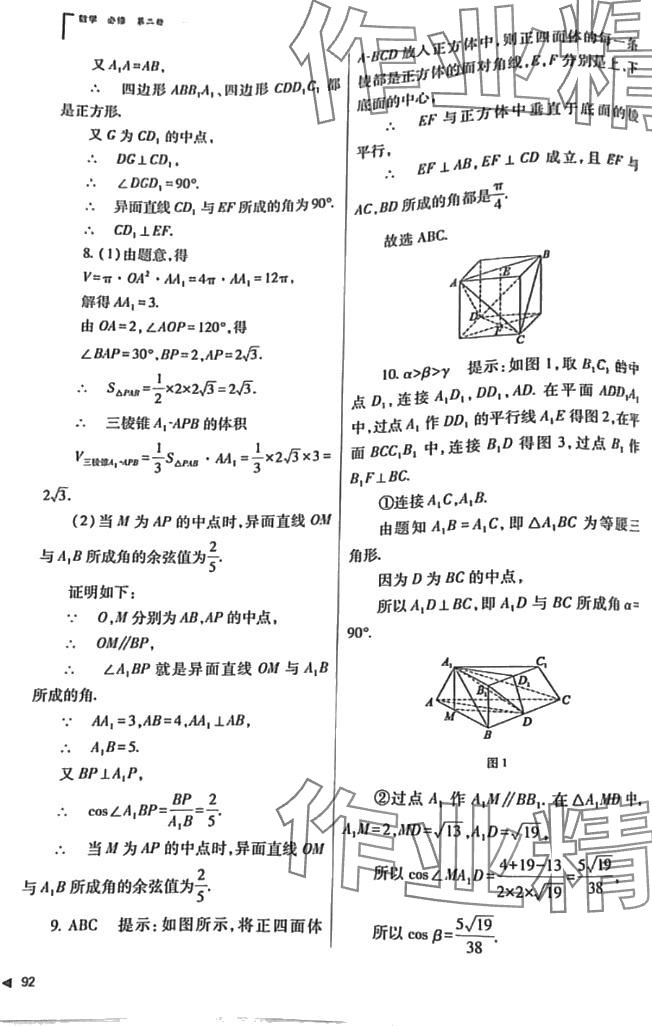 数学 必修 第二册
又A₁A=AB,
∴ 四边形 ABB₁A₁、四边形 CDD₁C₁ 都
是正方形.
又 G 为 CD₁ 的中点,
∴ DG⊥CD₁,
∴ ∠DGD₁=90°.
∴ 异面直线 CD₁ 与 EF 所成的角为 90°.
∴ CD₁⊥EF.
8. (1)由题意,得
V=π·OA²·AA₁=4π·AA₁=12π,
解得 AA₁=3.
由 OA=2,∠AOP=120°,得
∠BAP=30°,BP=2,AP=2√3.
∴ S△PAB=1/2×2×2√3=2√3.
∴ 三棱锥 A₁-APB 的体积
V三棱锥A₁-APB=1/3S△PAB·AA₁=1/3×2√3×3=
2√3.
(2)当 M 为 AP 的中点时,异面直线 OM
与 A₁B 所成角的余弦值为2/5.
证明如下:
∵ O,M 分别为 AB,AP 的中点,
∴ OM∥BP,
∴ ∠A₁BP 就是异面直线 OM 与 A₁B
所成的角.
∵ AA₁=3,AB=4,AA₁⊥AB,
∴ A₁B=5.
又 BP⊥A₁P,
∴ cos∠A₁BP=BP/A₁B=2/5.
∴ 当 M 为 AP 的中点时,异面直线 OM
与 A₁B 所成角的余弦值为2/5.
9. ABC 提示:如图所示,将正四面体
A-BCD 放入正方体中,则正四面体的每一条
棱都是正方体的面对角线,E,F 分别是上、下
底面的中心,
∴ EF 与正方体中垂直于底面的棱
平行,
∴ EF⊥AB,EF⊥CD 成立,且 EF 与
AC,BD 所成的角都是π/4.
故选 ABC.
A B E D F C
10. α>β>γ 提示:如图 1,取 B₁C₁ 的中
点 D₁,连接 A₁D₁,DD₁,AD. 在平面 ADD₁A₁
中,过点 A₁ 作 DD₁ 的平行线 A₁E 得图 2,在平
面 BCC₁B₁ 中,连接 B₁D 得图 3,过点 B₁ 作
B₁F⊥BC.
①连接 A₁C,A₁B.
由题知 A₁B=A₁C,即△A₁BC 为等腰三
角形.
因为 D 为 BC 的中点,
所以 A₁D⊥BC,即 A₁D 与 BC 所成角 α=
90°.
A₁ C₁ D₁ B₁ A C M D B
图 1
②过点 A₁ 作 A₁M∥BB₁. 在△A₁MD 中,
A₁M=2,MD=√13,A₁D=√19,
所以 cos∠MA₁D=(4+19-13)/(2×2×√19)=5√19/38,
所以 cos β=5√19/38.
92
作业精
作业精